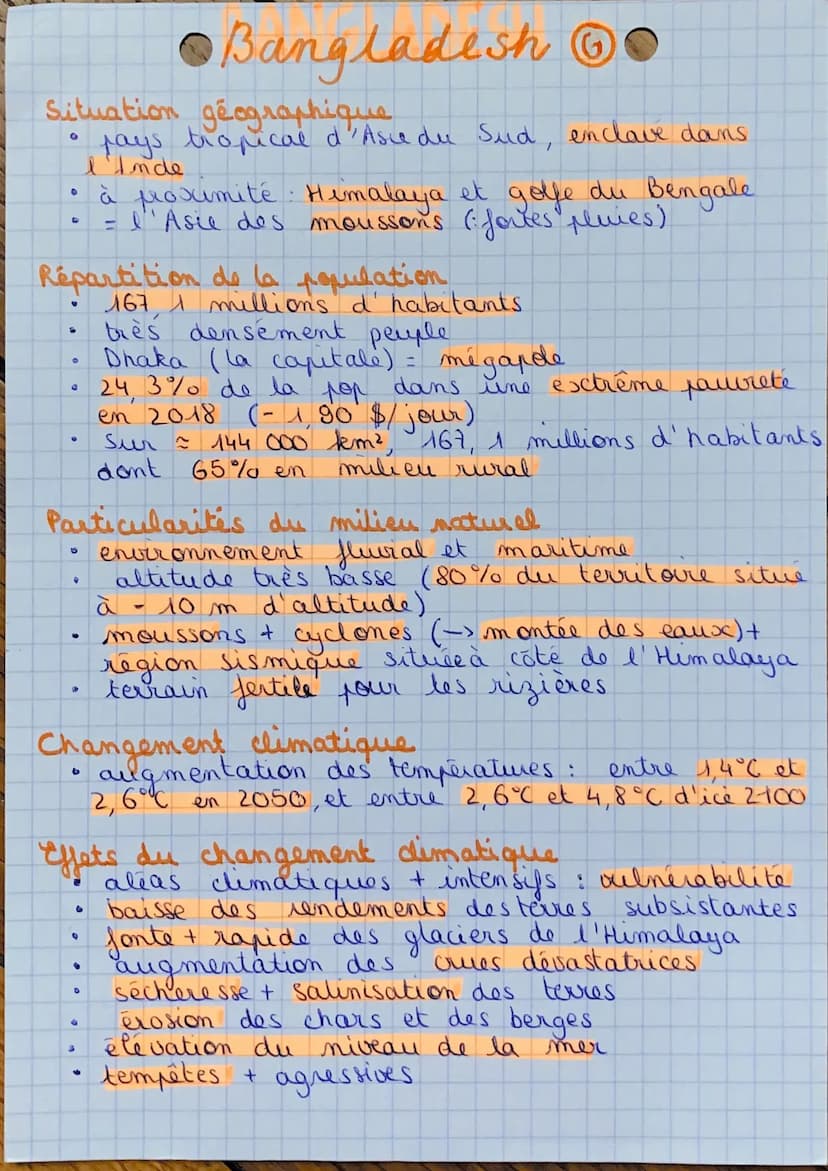 Bangladesh G
Situation géographique
• pays tropical d'Asie du Sud, enclavé dans
l'Inde
• à proximité : Himalaya et golfe du Bengale
• = l'Asie des moussons (: fortes pluies)
Répartition de la population
• 167, 1 millions d'habitants
• très densément peuplé
• Dhaka (la capitale) = mégapole
• 24, 3% de la pop dans une exctrême pauvreté
en 2018 (- 1, 90 $/jour)
• Sur ≈ 144 000 km², 167, 1 millions d'habitants
dont 65% en milieu rural
Particularités du milieu naturel
• environnement fluvial et maritime
• altitude très basse (80% du territoire situé
à - 10 m d'altitude)
• moussons + cyclones (-> montée des eaux) +
région sismique située à côté de l'Himalaya
• terrain fertile pour les rizières
Changement climatique
• augmentation des températures : entre 1,4°C et
2,6°C en 2050, et entre 2,6°C et 4,8°C d'ici 2100
Effets du changement climatique
• aléas climatiques + intensifs : vulnérabilité
• baisse des rendements des terres subsistantes
• fonte + rapide des glaciers de l'Himalaya
• augmentation des crues dévastatrices
• sécheresse + salinisation des terres
• érosion des chars et des berges
• élévation du niveau de la mer
• tempêtes + agressives